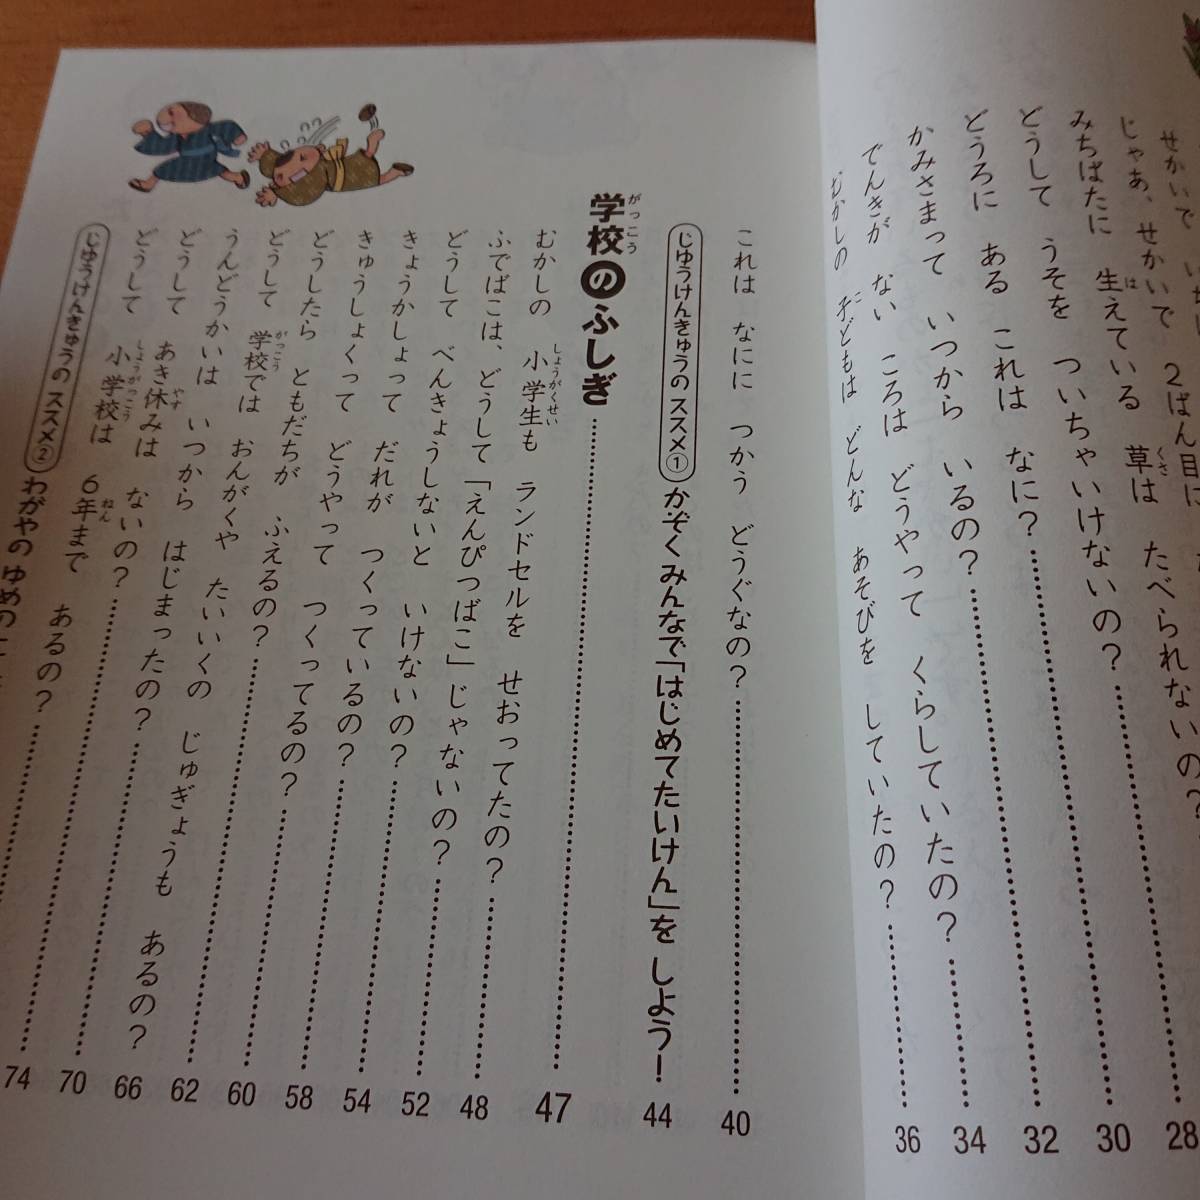 せかいで
じゃあ、せかいで 2ばん目に
みちばたに 生えている 草は たべられないの?
どうして うそを ついちゃいけないの? 28
どうろに ある これは なに? 30
かみさまって いつから いるの? 32
でんきが ない ころは どうやって くらしていたの? 34
むかしの 子どもは どんな あそびを していたの? 36
これは なにに つかう どうぐなの? 40
じゆうけんきゅうの ススメ① かぞくみんなで「はじめてたいけん」を しよう! 44
学校のふしぎ 47
むかしの 小学生も ランドセルを せおってたの? 48
ふでばこは、どうして「えんぴつばこ」じゃないの? 52
どうして べんきょうしないと いけないの? 54
きょうかしょって だれが つくっているの? 58
きゅうしょくって どうやって つくってるの? 60
どうしたら ともだちが ふえるの? 62
どうして 学校では おんがくや たいいくの じゅぎょうも あるの? 66
うんどうかいは いつから はじまったの? 70
どうして あき休みは ないの? 74
どうして 小学校は 6年まで あるの?
じゆうけんきゅうの ススメ② わがやの ゆめの